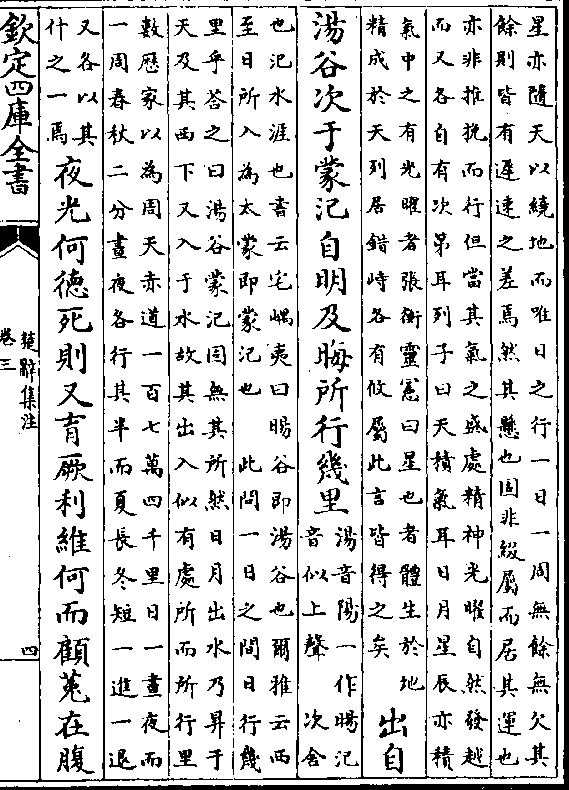 星亦隨天以繞地而唯日之行一日一周無餘無欠其
餘則皆有遲速之差焉然其懸也固非綴屬而居其運也
亦非推挽而行但當其氣之盛處精神光曜自然發越
而又各自有次第耳列子曰天積氣耳日月星辰亦積
氣中之有光曜者張衡靈憲曰星也者體生於地
精成於天列居錯峙各有攸屬此言皆得之矣
出自
湯谷次于蒙汜自明及晦所行幾里
湯音陽一作暘汜
音似上聲 次舍
也汜水涯也書云宅嵎夷曰暘谷即湯谷也爾雅云西
至日所入為太蒙即蒙汜也 此問一日之間日行幾
里乎荅之曰湯谷蒙汜固無其所然日月出水乃昇于
天及其西下又入于水故其出入似有處所而所行里
數厯家以為周天赤道一百七萬四千里日一晝夜而
一周春秋二分晝夜各行其半而夏長冬短一進一退
又各以其
什之一焉
夜光何德死則又育厥利維何而顧菟在腹
欽定四庫全書
楚辭集注
卷三
四